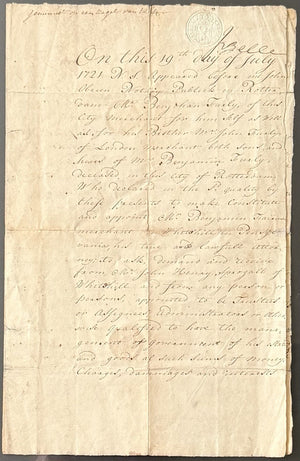 On this 19th day of July
1721 N.S. Appeared before me John
Obeen Notary Publick in Rotter
dam Mr. Benjohan Furly of this
City Merchant for him self as well
as for his Brother Mr. John Furly
of London merchant both sons and
heirs of Mr. Benjamin Furly
deceased in this city of Rotterdam
Who declared in the Sd. quality by
these presents to make Constitute
and appoint Mr. Benjamin
merchant Whitehill in Pensyl
vania, his true and lawfull attor
ney, to ask, demand and receive
from Mr. John Henry Sprogell of
Whitehill and from any person or
persons, appointed to be Trustees
or Assignees Administrators or other
wise qualified to have the mana
gement of government of his Estate
and goods all such sums of money
Charges, dammages and Interests